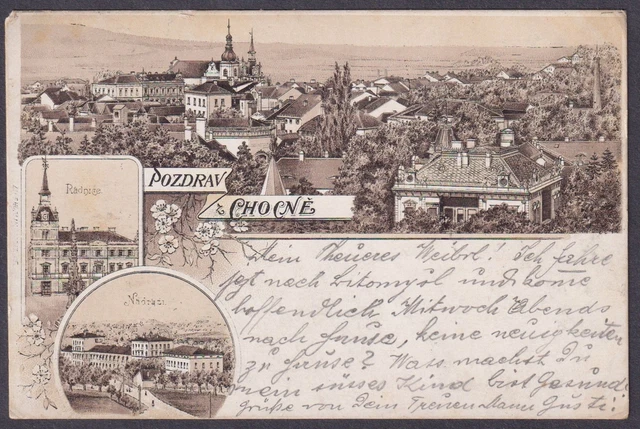 POZDRAV
z CHOCNĚ
Radnice
Nádraží
Mein Theueres Weibrl! Ich fahre
jezt nach Litomyšl und kome
hoffendlich Mitwoch Abends
nach Hause, keine neuigkeiten
zu Hause? Was machst Du
mein süsses Kind bist Gesund
Grüße von Dein Treuen Mann Gusti!